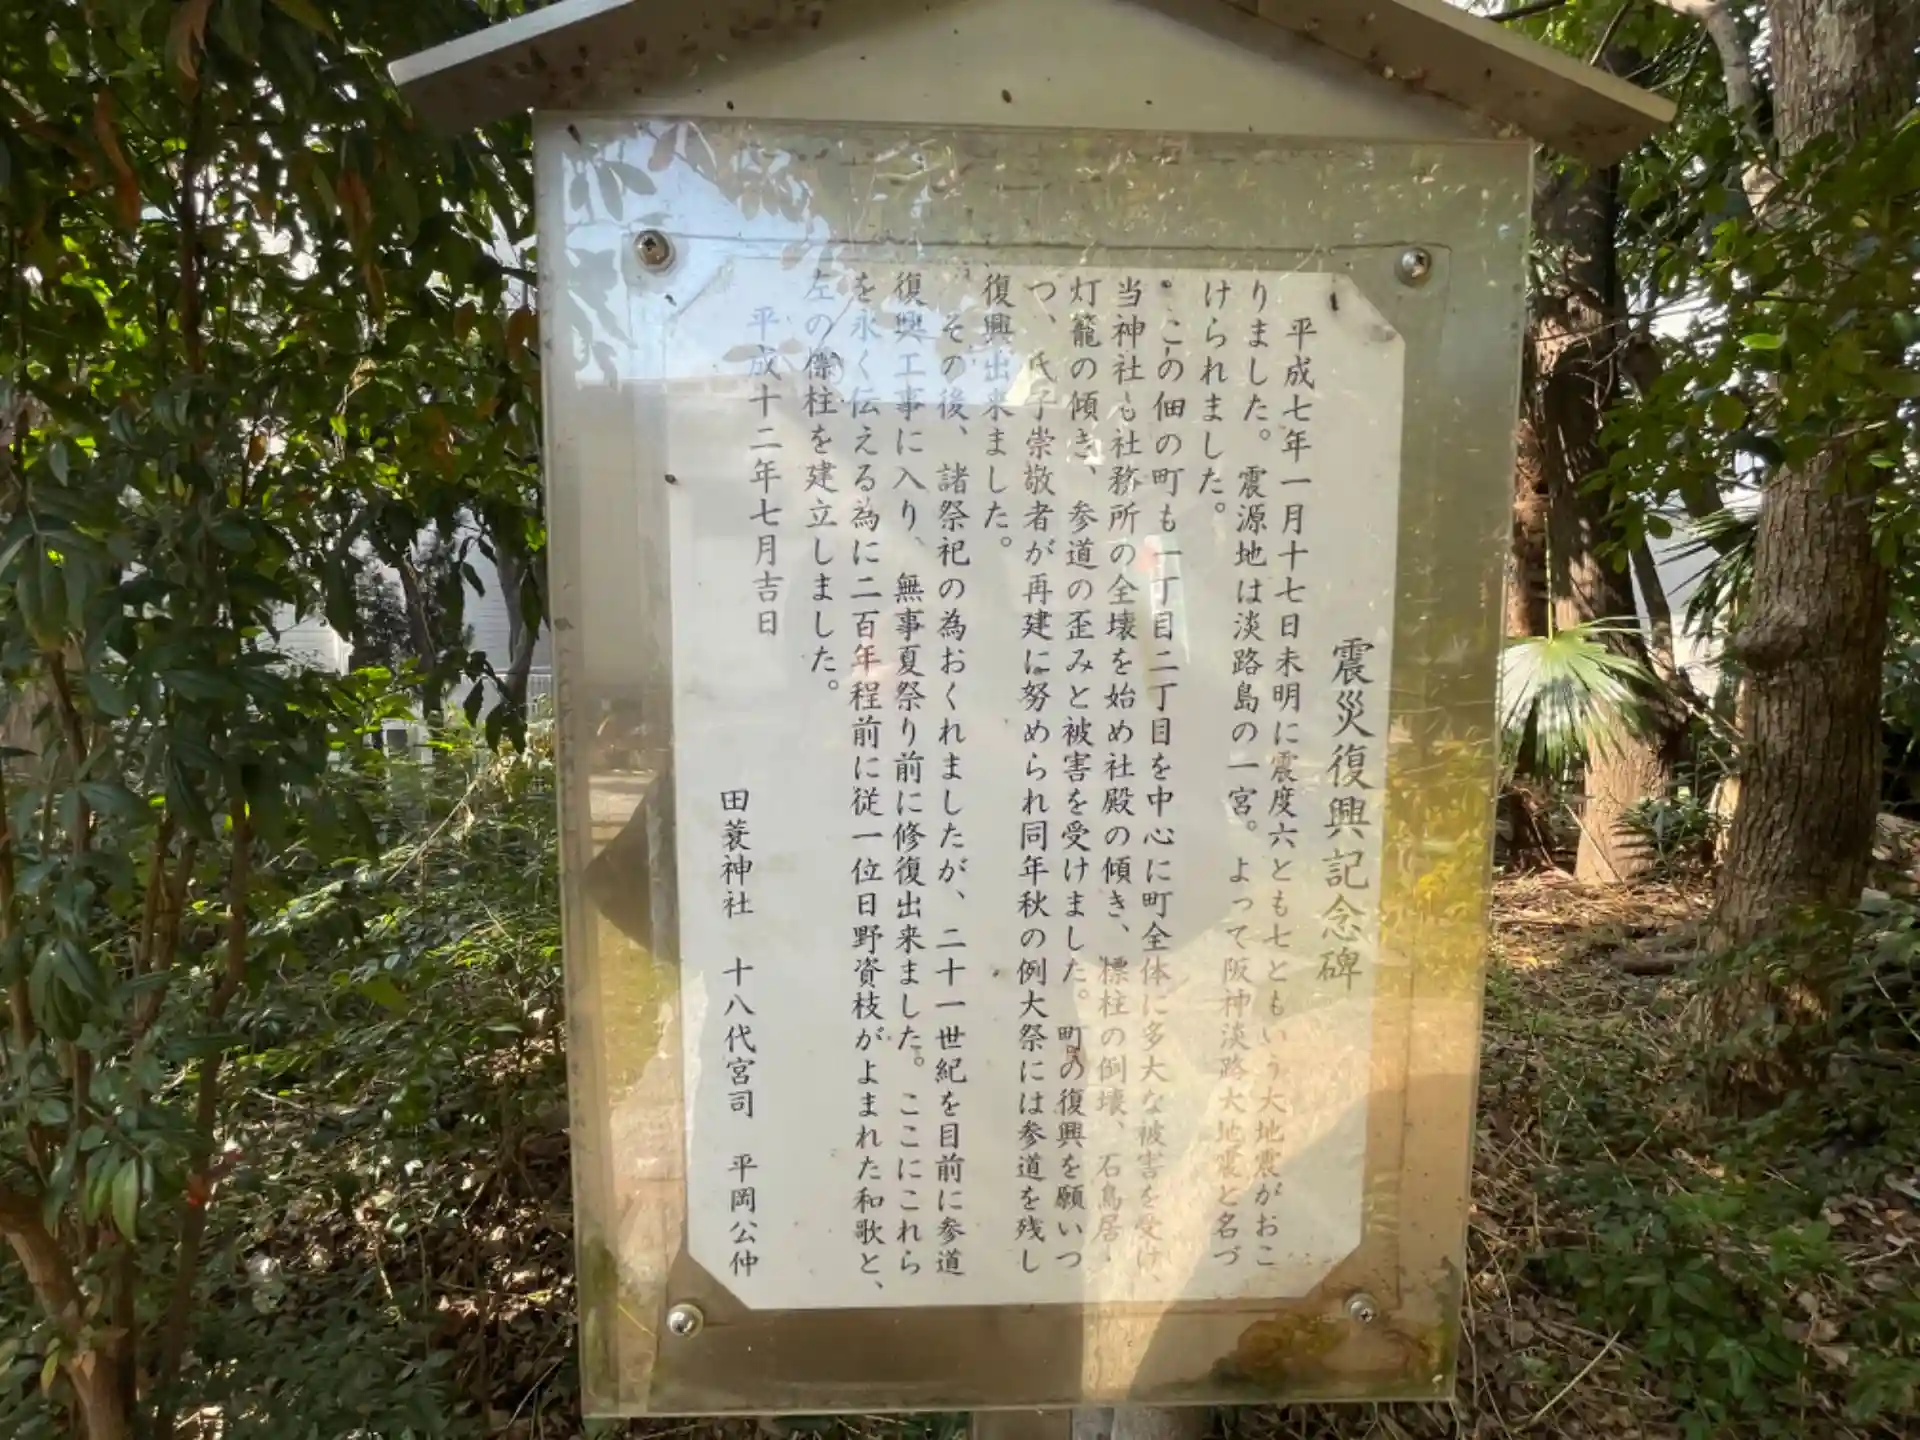 震災復興記念碑
平成七年一月十七日未明に震度六とも七ともいう大地震がおこ
りました。震源地は淡路島の一宮。よって阪神淡路大地震と名づ
けられました。
この佃の町も一丁目二丁目を中心に町全体に多大な被害を受け、
当神社も社務所の全壊を始め社殿の傾き、標柱の倒壊、石鳥居・
灯籠の傾き、参道の歪みと被害を受けました。町の復興を願いつ
つ、氏子崇敬者が再建に努められ同年秋の例大祭には参道を残し
復興出来ました。
その後、諸祭祀の為おくれましたが、二十一世紀を目前に参道
復興工事に入り、無事夏祭り前に修復出来ました。ここにこれら
を永く伝える為に二百年程前に従一位日野資枝がよまれた和歌と、
左の標柱を建立しました。
平成十二年七月吉日
田蓑神社 十八代宮司 平岡公仲